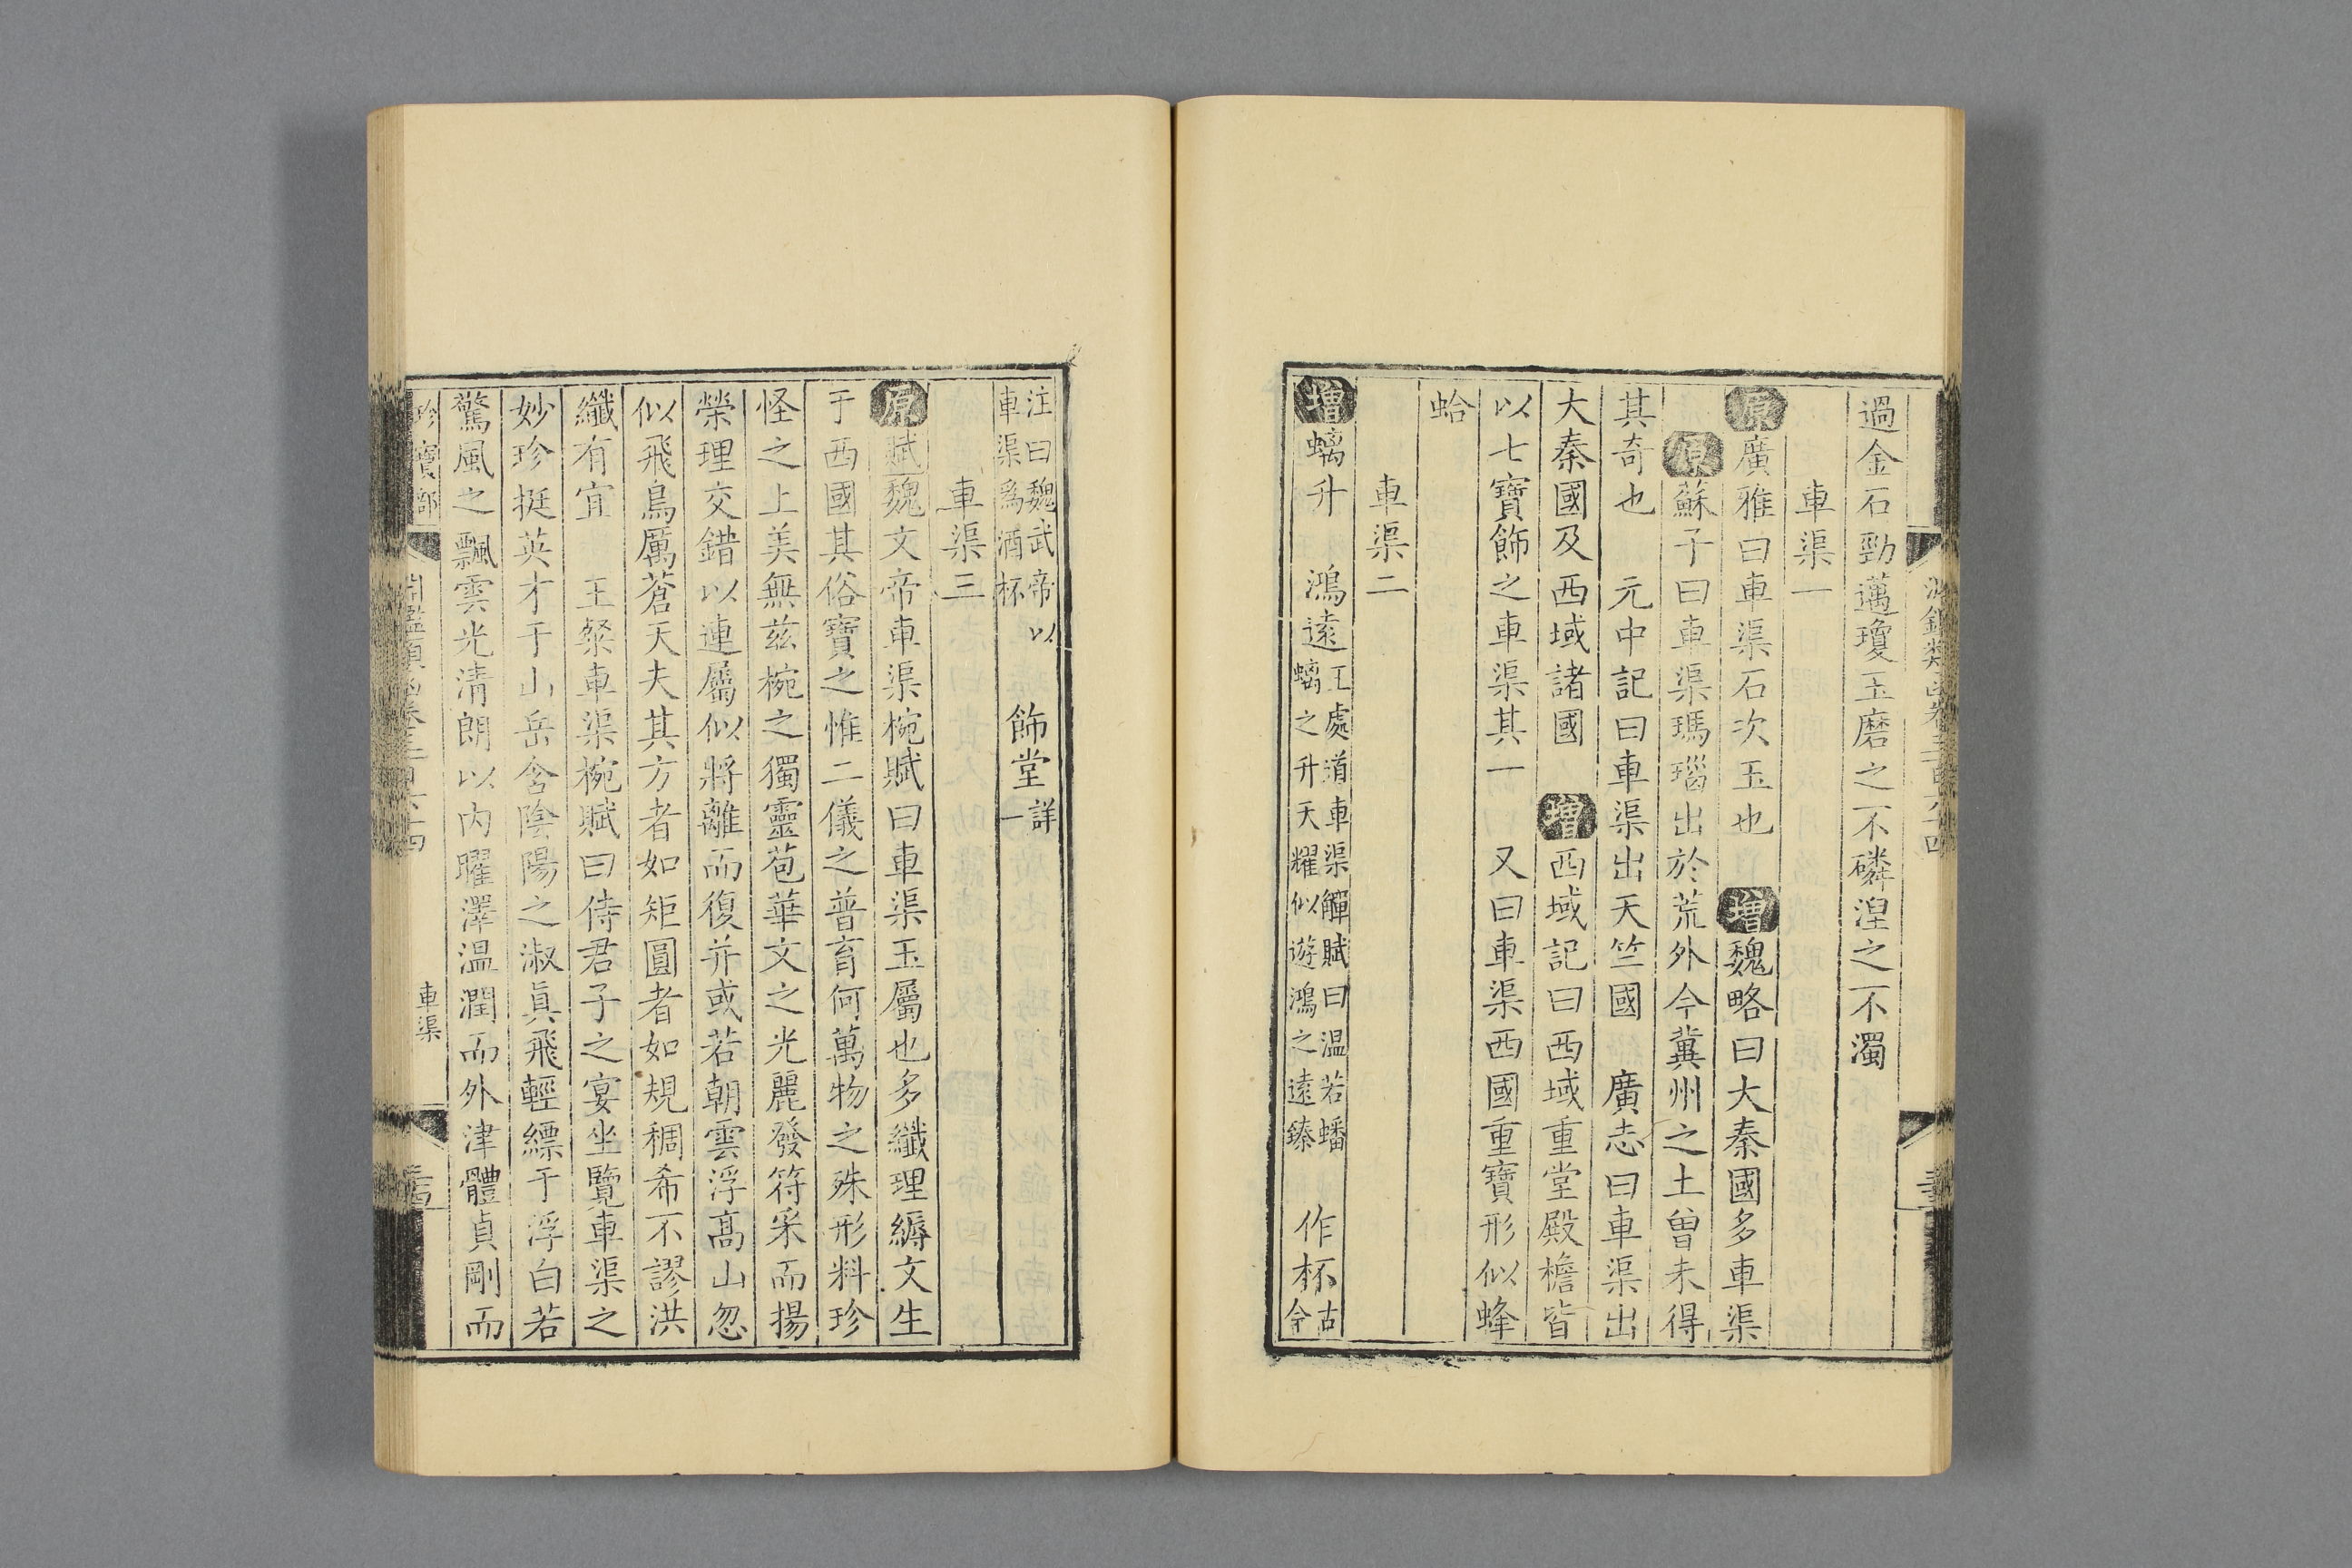 過金石勁邁瓊玉磨之不磷湼之不濁
車渠一
原廣雅曰車渠石次玉也 增魏略曰大秦國多車渠
原蘇子曰車渠瑪瑙出於荒外今冀州之土曾未得
其奇也 元中記曰車渠出天竺國 廣志曰車渠出
大秦國及西域諸國 增西域記曰西域重堂殿檐皆
以七寶飾之車渠其一 又曰車渠西國重寶形似蜂
蛤
車渠二
增螭升 鴻遠王處道車渠觶賦曰温若蟠螭之升天耀似遊鴻之遠臻 作杯古今
注曰魏武帝以車渠為酒杯 飾堂詳一
車渠三
原賦魏文帝車渠椀賦曰車渠玉屬也多纖理縟文生
于西國其俗寶之惟二儀之普育何萬物之殊形料珍
怪之上美無兹椀之獨靈苞華文之光麗發符采而揚
榮理交錯以連屬似將離而復并或若朝雲浮高山忽
似飛鳥厲蒼天夫其方者如矩圓者如規稠希不謬洪
纖有宜 王粲車渠椀賦曰侍君子之宴坐覽車渠之
妙珍挺英才于山岳含陰陽之淑眞飛輕縹于浮白若
驚風之飄雲光清朗以内曜澤温潤而外津體貞剛而
珍寶部 淵鑑類函卷三百六十四 車渠